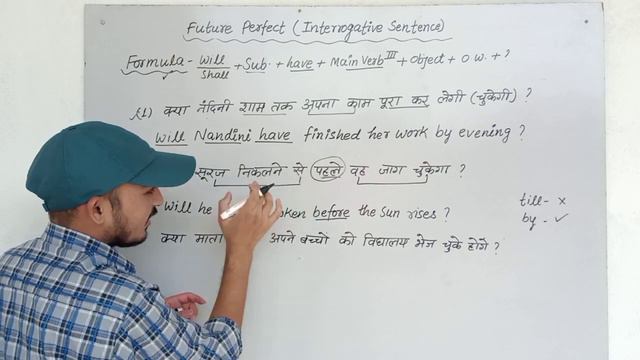 Future Perfect (Interrogative Sentence)
Formula - Will/Shall + Sub. + have + Main Verb III + Object + O.W. + ?
(1) क्या नंदिनी शाम तक अपना काम पूरा कर लेगी (चुकेगी) ?
Will Nandini have finished her work by evening ?
सूरज निकलने से पहले वह जाग चुकेगा ?
Will he before the Sun rises ?
till - x
by - ✓
क्या माता अपने बच्चों को विद्यालय भेज चुके होंगे ?